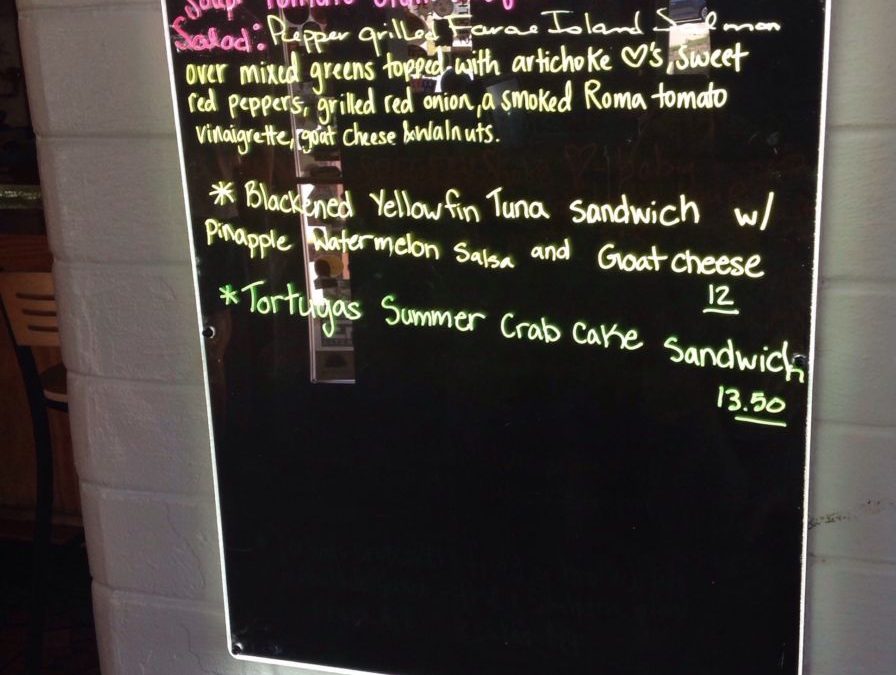 Soup Tomato
Salad: Pepper grilled Farae Island Salmon
over mixed greens topped with artichoke ♡'s, sweet
red peppers, grilled red onion, a smoked Roma tomato
vinaigrette, goat cheese & walnuts.
* Blackened Yellowfin Tuna sandwich w/
Pinapple Watermelon Salsa and Goat cheese
12
* Tortugas Summer Crab Cake Sandwich
13.50